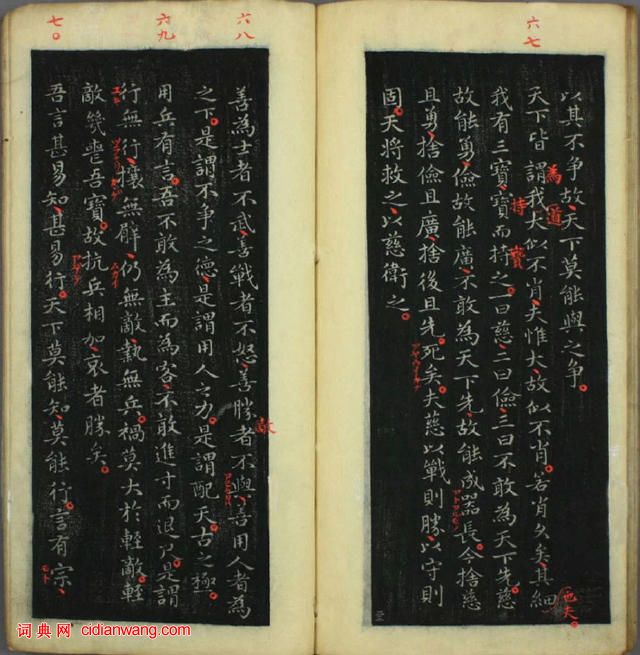 六七
以其不争故天下莫能與之争
天下皆謂我大似不肖夫惟大故似不肖若肖久矣其細
我有三寶寶而持之一曰慈二曰儉三曰不敢為天下先慈
故能勇儉故能廣不敢為天下先故能成器長今捨慈
且勇捨儉且廣捨後且先死矣夫慈以戰則勝以守則
固天將救之以慈衛之
為
道
持
寶
也夫
六八
善為士者不武善戰者不怒善勝者不與善用人者為
之下是謂不争之德是謂用人之力是謂配天古之極
敵
六九
用兵有言吾不敢為主而為客不敢進寸而退尺是謂
行無行攘無臂仍無敵執無兵禍莫大於輕敵輕
敵幾喪吾寶故抗兵相加哀者勝矣
七〇
吾言甚易知甚易行天下莫能知莫能行言有宗
モト
词典网 cidianwang.com